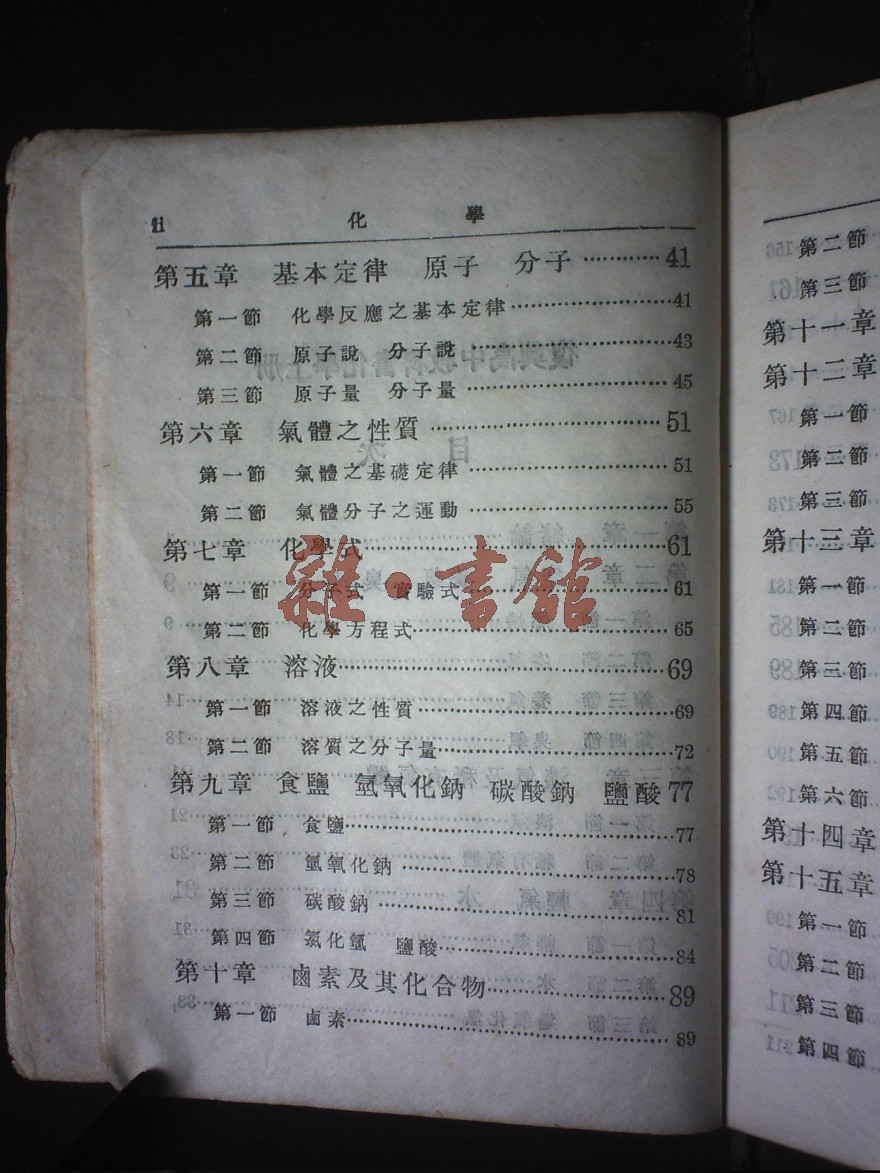 ii 化 學
第五章 基本定律 原子 分子············41
第一節 化學反應之基本定律···················41
第二節 原子說 分子說························43
第三節 原子量 分子量························45
第六章 氣體之性質···························51
第一節 氣體之基礎定律······················51
第二節 氣體分子之運動······················55
第七章 化學式·································61
第一節 分子式 實驗式························61
第二節 化學方程式····························65
第八章 溶液····································69
第一節 溶液之性質····························69
第二節 溶質之分子量·························72
第九章 食鹽 氫氧化鈉 碳酸鈉 鹽酸 77
第一節 食鹽····································77
第二節 氫氧化鈉·······························78
第三節 碳酸鈉·································81
第四節 氯化氫 鹽酸··························84
第十章 鹵素及其化合物······················89
第一節 鹵素····································89
雜·書館
第二節
第三節
第十一章
第十二章
第一節
第二節
第三節
第十三章
第一節
第二節
第三節
第四節
第五節
第六節
第十四章
第十五章
第一節
第二節
第三節
第四節